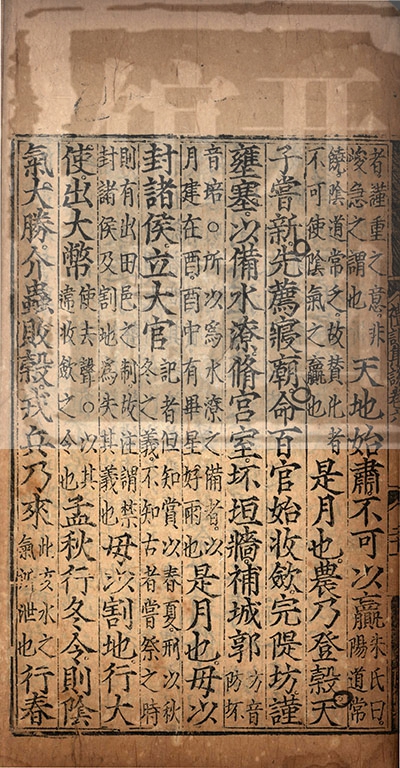 者謹重之意非峻急之謂也天地始肅不可以贏朱氏曰陽道常
饒陰道常乏故贊化者不可使陰氣之贏也是月也農乃登穀天
子嘗新先薦寢廟命百官始收斂完隄坊謹
壅塞以備水潦脩宮室坏垣牆補城郭坊音防坏
音培○所以為水潦之備者以月建在酉酉中有畢星好雨也是月也毋以
封諸侯立大官記者但知賞以春夏刑以秋冬之義不知古者嘗祭之時
則有出田邑之制故注謂禁封諸侯及割地為失其義也毋以割地行大
使出大幣使去聲○以其違收斂之令也孟秋行冬令則陰
氣大勝介蟲敗穀戎兵乃來此亥水之氣所泄也行春